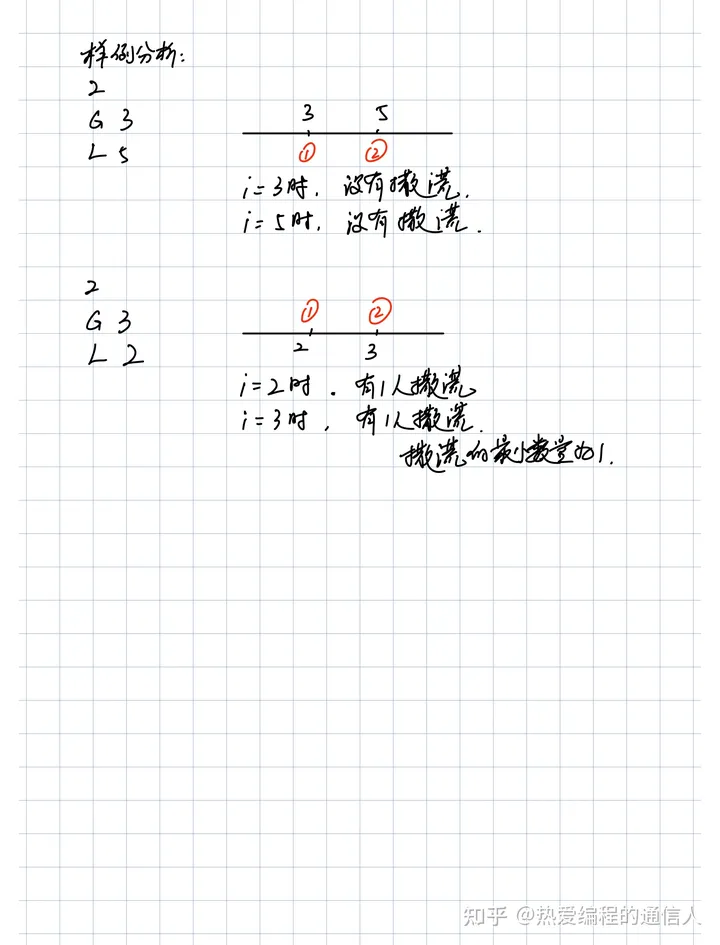 样例分析:
2
G 3
L 5
3 5
① ②
i=3时, 没有撒谎.
i=5时, 没有撒谎.
2
G 3
L 2
① ②
2 3
i=2时. 有1人撒谎
i=3时, 有1人撒谎.
撒谎的最小数量为1.
知乎 @热爱编程的通信人